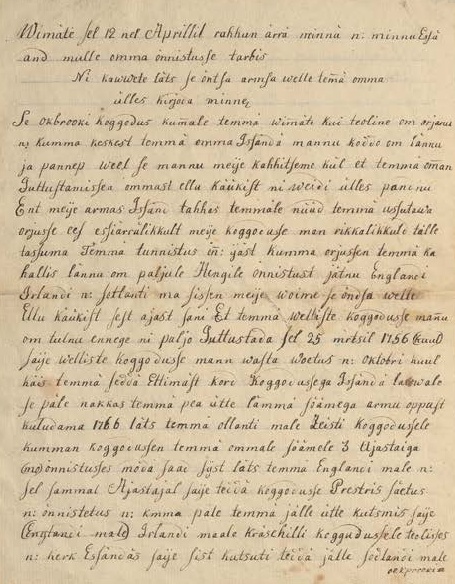 Wimäte sel 12 nel Aprillil rakkun ärrä minnä n: minnu Essä
and mulle omma önnistusse tarbis
Ni kauwete läts se öntsa armsa welle temä omma
ülles kirjota minne
Se Okbrooki Koggodus kumale temmä wimäti kui teoline om orjanu
n: kumma keskest temmä omma Issändä mannu koddo om lännu
ja pannep weel se mannu meije kahhitseme kül et temmä oman
Juttustamissen ommast ellu käükist ni weidi ülles pandnu
Ent meije armas Issänd tahhas temmäle nüüd temmä ussutawa
orjusse eest essiärralikkult meije koggodusse man rikkalikkult jälle
tassuma Temmä tunnistus in: ijäst kumma orjussen temmä ka
hallis lännu om paljule Hengile önnistust jätnu Englandi
Irlandi n: Sotlanti ma sissen meije woime se öndsa welle
Ellu käükist sest ajast sani Et temmä welliste koggodusse mannu
om tulnu ennege ni paljo Juttustada sel 25 märtsil 1756 (kuul)
saije welliste koggodusse mann wasta woetus n: Oktobri kuul
käis temmä seddä Ettimäst kord Koggodussega Issändä lauwale
se päle nakkas temmä pea ütte lämmä söämega armu oppust
kuludama 1766 läts temmä ollanti male Zeisti koggodusele
kumman koggodussen temmä ommale söämele 3 Ajastaiga
(no) önnistusses möda saad Syst läts temmä Englandi male n:
sel sammal Ajastajal saije teidä koggodusse Prestris säetus
n: önnistetus n: kmma päle temmä jälle ütte kutsmis saije
(Englandi male) Irlandi maale Kräsehilli koggudussele teolisses
n: herk Essändäs saije sist kutsuti teidä jälle sotlandi male